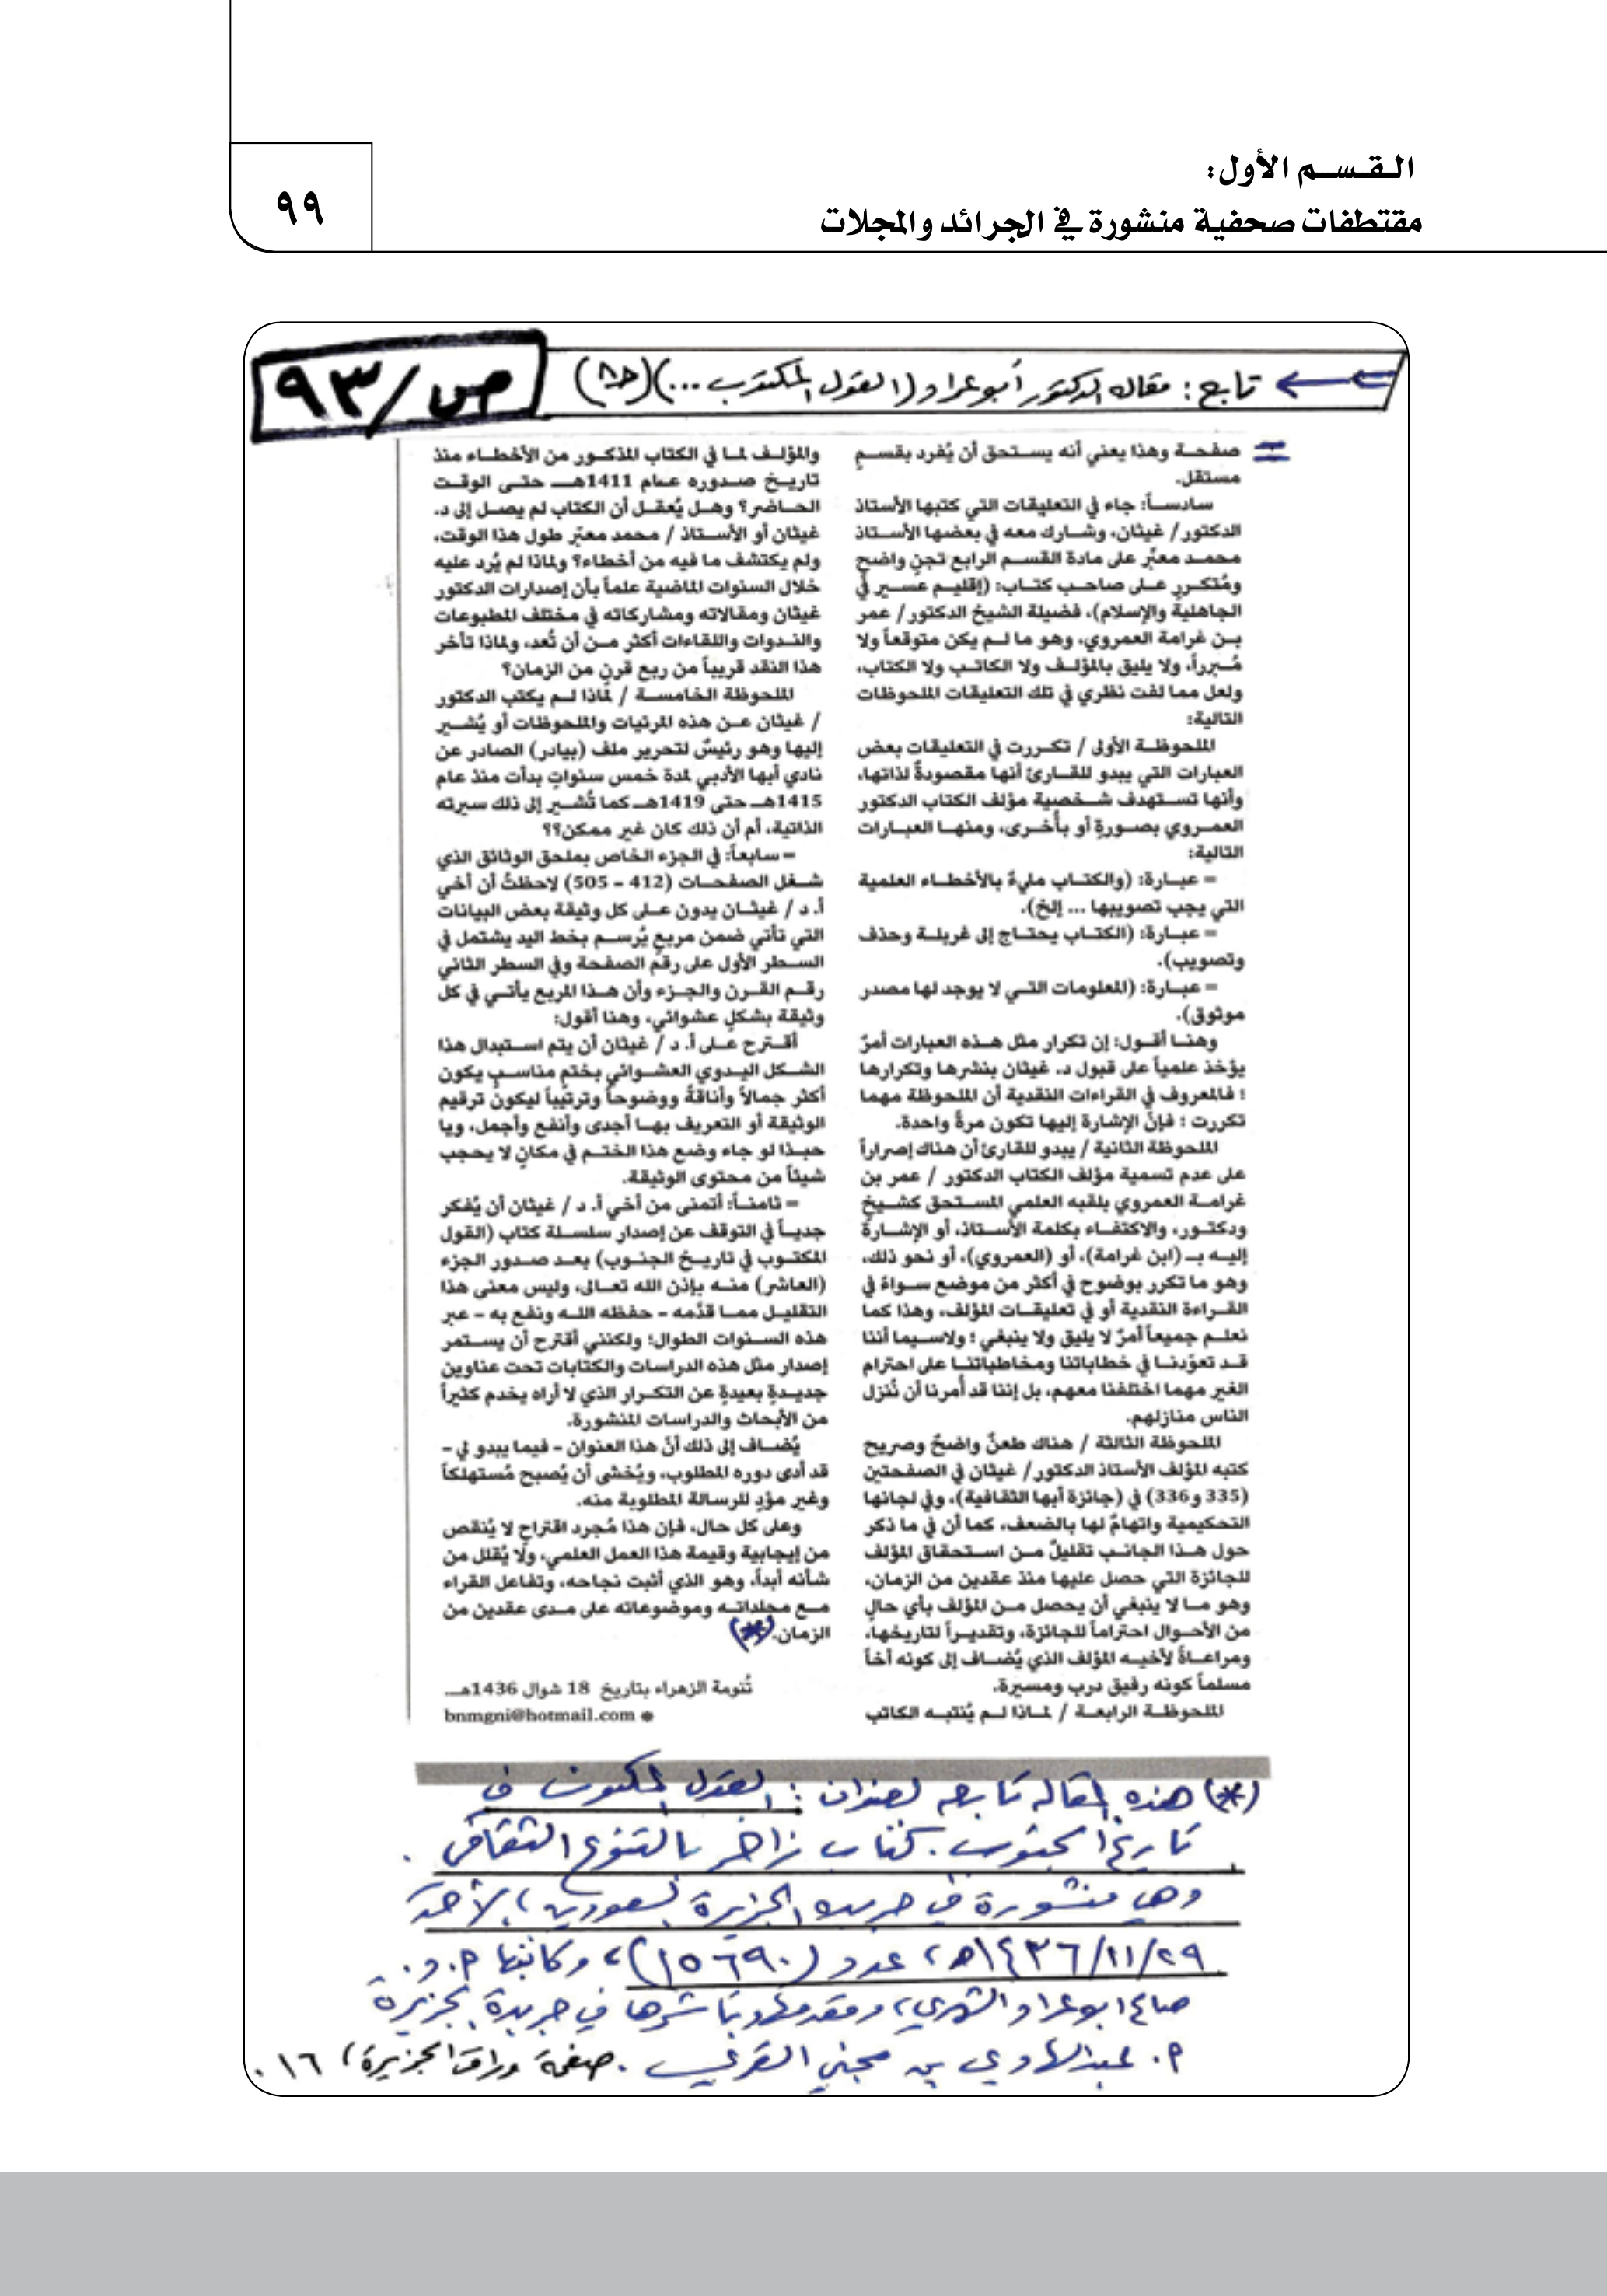 القسم الأول:
مقتطفات صحفية منشورة في الجرائد والمجلات
٩٩
تابع: مقاله الدكتور أبو عراد (القول المكتوب ...)
ص/٩٣
صفحة وهذا يعني أنه يستحق أن يُفرد بقسمٍ
مستقل.
سادساً: جاء في التعليقات التي كتبها الأستاذ
الدكتور/ غيثان، وشارك معه في بعضها الأستاذ
محمد معبّر على مادة القسم الرابع تجنٍ واضح
ومُتكرر على صاحب كتاب: (إقليم عسير في
الجاهلية والإسلام)، فضيلة الشيخ الدكتور/ عمر
بن غرامة العمروي، وهو ما لم يكن متوقعاً ولا
مُبرراً، ولا يليق بالمؤلف ولا الكاتب ولا الكتاب،
ولعل مما لفت نظري في تلك التعليقات الملحوظات
التالية:
الملحوظة الأولى / تكررت في التعليقات بعض
العبارات التي يبدو للقارئ أنها مقصودةٌ لذاتها،
وأنها تستهدف شخصية مؤلف الكتاب الدكتور
العمروي بصورةٍ أو بأُخرى، ومنها العبارات
التالية:
= عبارة: (والكتاب مليءٌ بالأخطاء العلمية
التي يجب تصويبها ... إلخ).
= عبارة: (الكتاب يحتاج إلى غربلة وحذف
وتصويب).
= عبارة: (المعلومات التي لا يوجد لها مصدر
موثوق).
وهنا أقول: إن تكرار مثل هذه العبارات أمرٌ
يؤخذ علمياً على قبول د. غيثان بنشرها وتكرارها
؛ فالمعروف في القراءات النقدية أن الملحوظة مهما
تكررت ؛ فإنّ الإشارة إليها تكون مرةً واحدة.
الملحوظة الثانية / يبدو للقارئ أن هناك إصراراً
على عدم تسمية مؤلف الكتاب الدكتور / عمر بن
غرامة العمروي بلقبه العلمي المستحق كشيخٍ
ودكتور، والاكتفاء بكلمة الأستاذ، أو الإشارة
إليه بـ (ابن غرامة)، أو (العمروي)، أو نحو ذلك،
وهو ما تكرر بوضوح في أكثر من موضع سواءً في
القراءة النقدية أو في تعليقات المؤلف، وهذا كما
نعلم جميعاً أمرٌ لا يليق ولا ينبغي ؛ ولاسيما أننا
قد تعوّدنا في خطاباتنا ومخاطباتنا على احترام
الغير مهما اختلفنا معهم، بل إننا قد أُمرنا أن نُنزل
الناس منازلهم.
الملحوظة الثالثة / هناك طعنٌ واضحٌ وصريح
كتبه المؤلف الأستاذ الدكتور/ غيثان في الصفحتين
(335 و336) في (جائزة أبها الثقافية)، وفي لجانها
التحكيمية واتهامٌ لها بالضعف، كما أن في ما ذكر
حول هذا الجانب تقليلٌ من استحقاق المؤلف
للجائزة التي حصل عليها منذ عقدين من الزمان،
وهو ما لا ينبغي أن يحصل من المؤلف بأي حالٍ
من الأحوال احتراماً للجائزة، وتقديراً لتاريخها،
ومراعاةً لأخيه المؤلف الذي يُضاف إلى كونه أخاً
مسلماً كونه رفيق درب ومسيرة.
الملحوظة الرابعة / لماذا لم يُنتبه الكاتب
والمؤلف لما في الكتاب المذكور من الأخطاء منذ
تاريخ صدوره عام 1411هـ حتى الوقت
الحاضر؟ وهل يُعقل أن الكتاب لم يصل إلى د.
غيثان أو الأستاذ / محمد معبّر طول هذا الوقت،
ولم يكتشف ما فيه من أخطاء؟ ولماذا لم يُرد عليه
خلال السنوات الماضية علماً بأن إصدارات الدكتور
غيثان ومقالاته ومشاركاته في مختلف المطبوعات
والندوات واللقاءات أكثر من أن تُعد، ولماذا تأخر
هذا النقد قريباً من ربع قرنٍ من الزمان؟
الملحوظة الخامسة / لماذا لم يكتب الدكتور
/ غيثان عن هذه المرئيات والملحوظات أو يُشير
إليها وهو رئيسٌ لتحرير ملف (بيادر) الصادر عن
نادي أبها الأدبي لمدة خمس سنواتٍ بدأت منذ عام
1415هـ حتى 1419هـ كما تُشير إلى ذلك سيرته
الذاتية، أم أن ذلك كان غير ممكن؟؟
= سابعاً: في الجزء الخاص بملحق الوثائق الذي
شغل الصفحات (412 – 505) لاحظتُ أن أخي
أ. د / غيثان يدون على كل وثيقة بعض البيانات
التي تأتي ضمن مربعٍ يُرسم بخط اليد يشتمل في
السطر الأول على رقم الصفحة وفي السطر الثاني
رقم القرن والجزء وأن هذا المربع يأتي في كل
وثيقة بشكلٍ عشوائي، وهنا أقول:
أقترح على أ. د / غيثان أن يتم استبدال هذا
الشكل اليدوي العشوائي بختمٍ مناسبٍ يكون
أكثر جمالاً وأناقةً ووضوحاً وترتيباً ليكون ترقيم
الوثيقة أو التعريف بها أجدى وأنفع وأجمل، ويا
حبذا لو جاء وضع هذا الختم في مكانٍ لا يحجب
شيئاً من محتوى الوثيقة.
= ثامناً: أتمنى من أخي أ. د / غيثان أن يُفكر
جدياً في التوقف عن إصدار سلسلة كتاب (القول
المكتوب في تاريخ الجنوب) بعد صدور الجزء
(العاشر) منه بإذن الله تعالى، وليس معنى هذا
التقليل مما قدّمه – حفظه الله ونفع به – عبر
هذه السنوات الطوال؛ ولكنني أقترح أن يستمر
إصدار مثل هذه الدراسات والكتابات تحت عناوين
جديدةٍ بعيدةٍ عن التكرار الذي لا أراه يخدم كثيراً
من الأبحاث والدراسات المنشورة.
يُضاف إلى ذلك أنّ هذا العنوان – فيما يبدو لي –
قد أدى دوره المطلوب، ويُخشى أن يُصبح مُستهلكاً
وغير مؤدٍ للرسالة المطلوبة منه.
وعلى كل حال، فإن هذا مُجرد اقتراح لا يُنقص
من إيجابية وقيمة هذا العمل العلمي، ولا يُقلل من
شأنه أبداً، وهو الذي أثبت نجاحه، وتفاعل القراء
مع مجلداته وموضوعاته على مدى عقدين من
الزمان. (*)
تُنومة الزهراء بتاريخ 18 شوال 1436هـ
* bnmgni@hotmail.com
(*) هذه المقاله تابعه لعنوان: القول المكتوب في
تاريخ الجنوب. كتاب زاخر بالتنوع الثقافي.
وهي منشورة في جريدة الجزيرة السعودية، الأحد
٢٩/١١/١٤٣٦هـ، عدد (١٥٦٩٠)، وكاتبها أ. د.
صالح ابو عراد الشهري، ومقدمها وناشرها في جريدة الجزيرة
أ. عبدالهادي بن مجني القرني. صفحة وراق الجزيرة، ١٦.